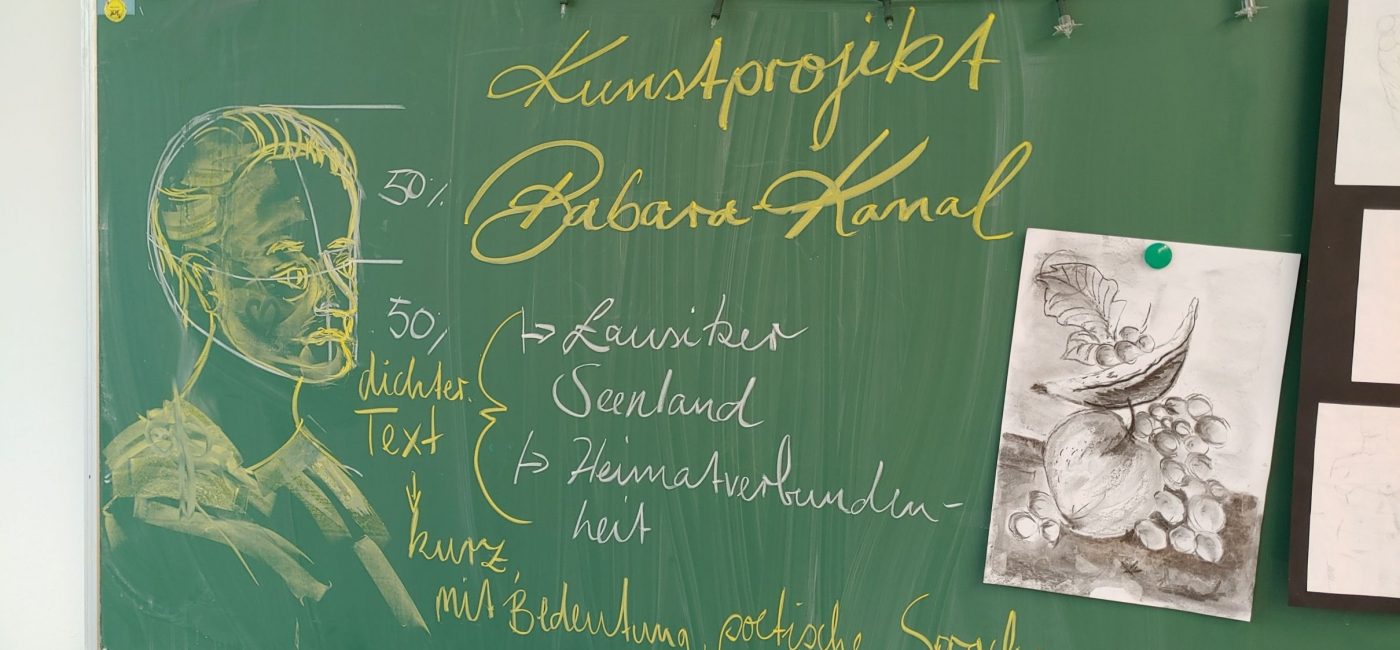 Kunstprojekt
Babara-Kanal
50%
50%
dichter
Text
→ Lausitzer
Seenland
→ Heimatverbunden-
heit
kurz,
mit Bedeutung, poetische Sprach